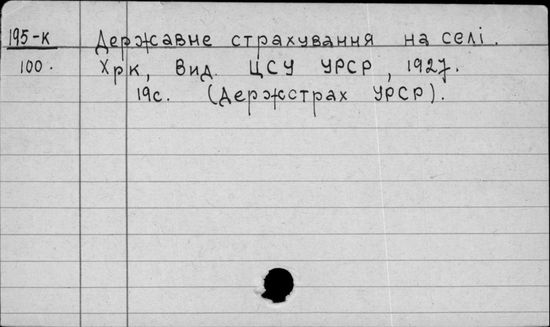 195-к Державне страхування на селі.
100. Хрк, Вид. ЦСУ УРСР, 1927.
19с. (Держстрах УРСР).